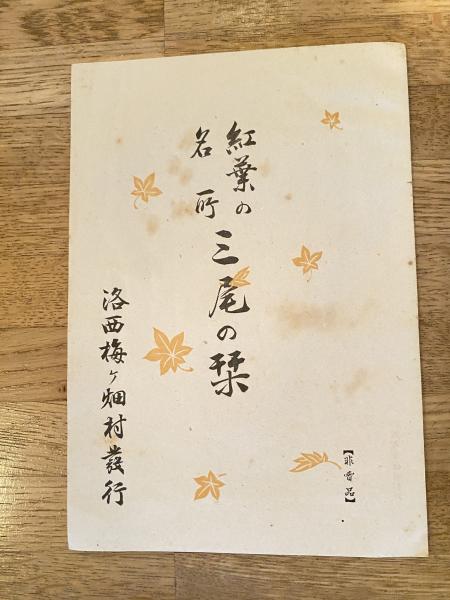 紅葉の
名所
三尾の栞
洛西梅ヶ畑村發行
【非賣品】